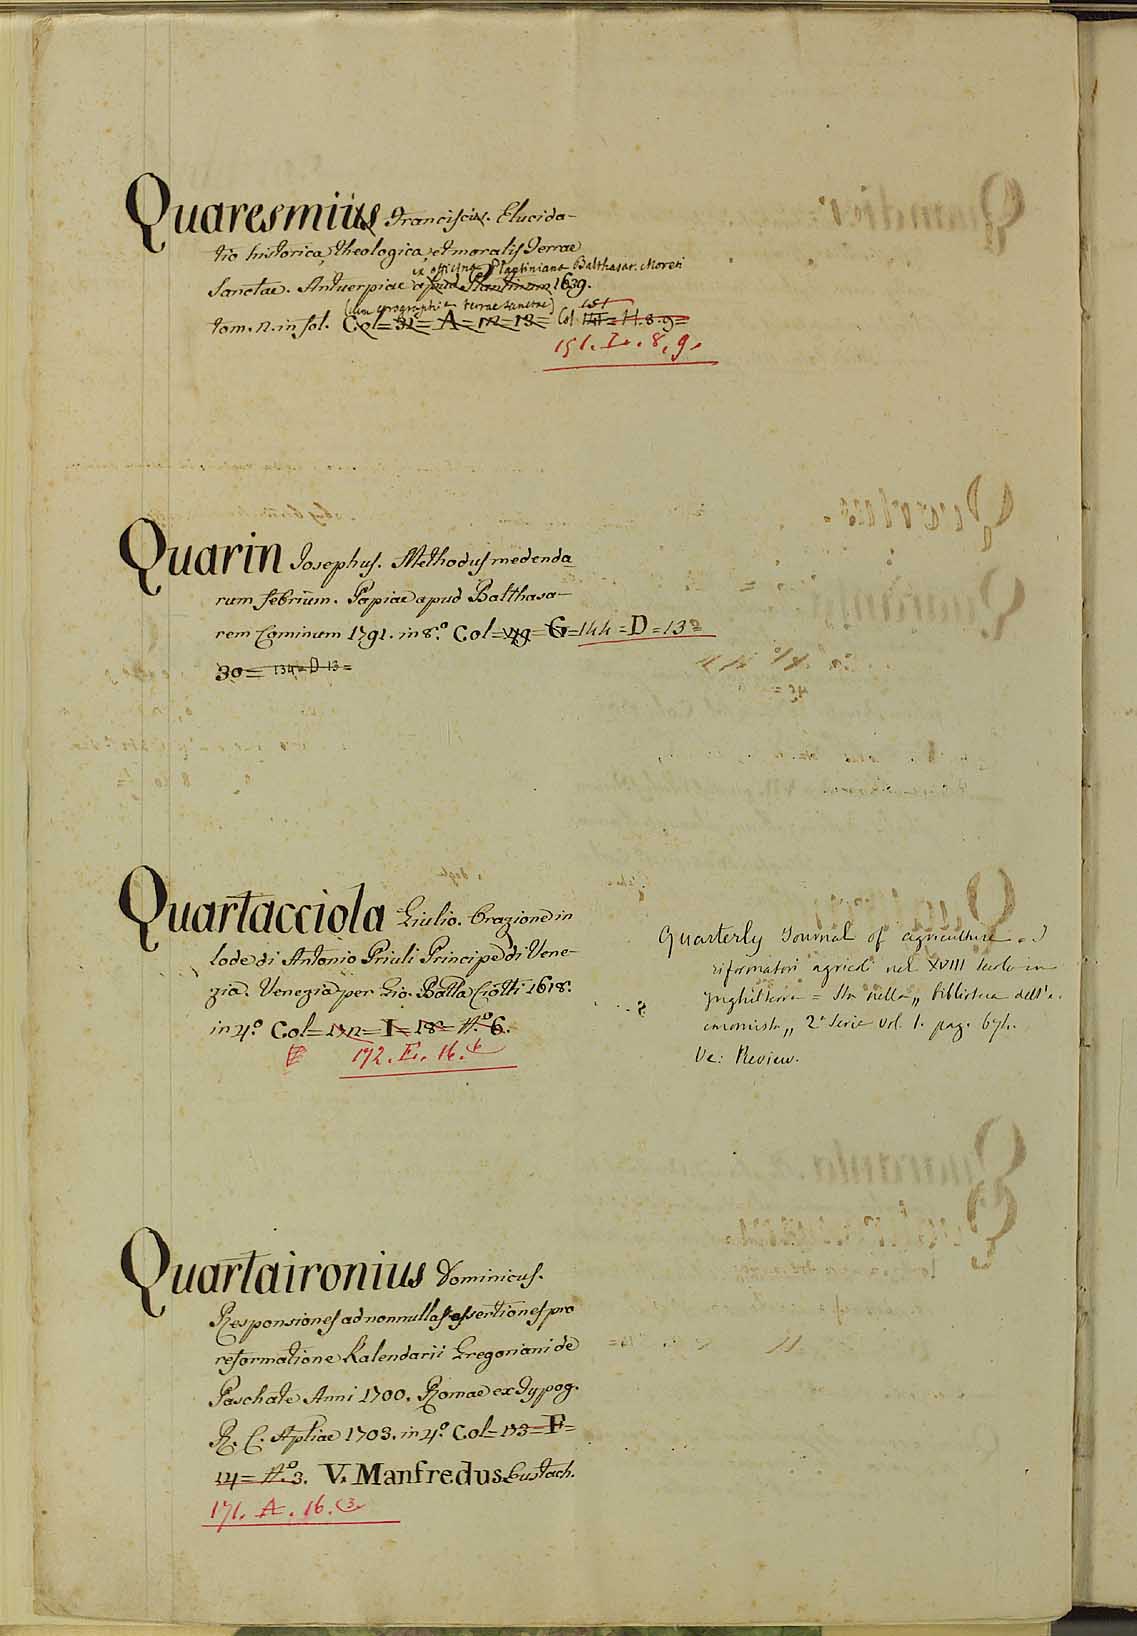 Quaresmius Franciscus. Elucida-
tio historica theologica et moralis Terrae
ex officina Plantiniana Balthasar. Moreti
Sanctae. Antuerpiae apud Plantinum 1639.
(cum Terrae Sanctae) 151
tom. 2. in fol. Col = 31 = A = 12 = 13 = Col. 141 = H. 8. 9 =
151. I. 8, 9.
Quarin Josephus. Methodus medenda
rum febrium. Papiae apud Balthasa-
rem Cominum 1791. in 8.º Col = 49 = G = 144 = D = 13 =
30 = 134 = D 13 =
Quartacciola Giulio. Orazione in
lode di Antonio Priuli Principe di Vene-
zia. Venezia per Gio. Batta Ciotti 1618.
in 4.º Col = 172 = I = 18 = N.º 6.
172. E. 16. 6
Quarterly Journal of agriculture = I
riformatori agricoli nel XVIII secolo in
Inghilterra = Sta nella „ biblioteca dell'e.
conomista „ 2ª Serie Vol. 1. pag. 671.
Ve: Review.
Quartaironius Dominicus.
Responsiones ad nonnullas assertiones pro
reformatione Kalendarii Gregoriani de
Paschate Anni 1700. Romae ex Typog.
R. C. Apliae 1703. in 4.º Col = 173 = F =
14 = N.º 3. V. Manfredus Eustach.
171. A. 16. 3